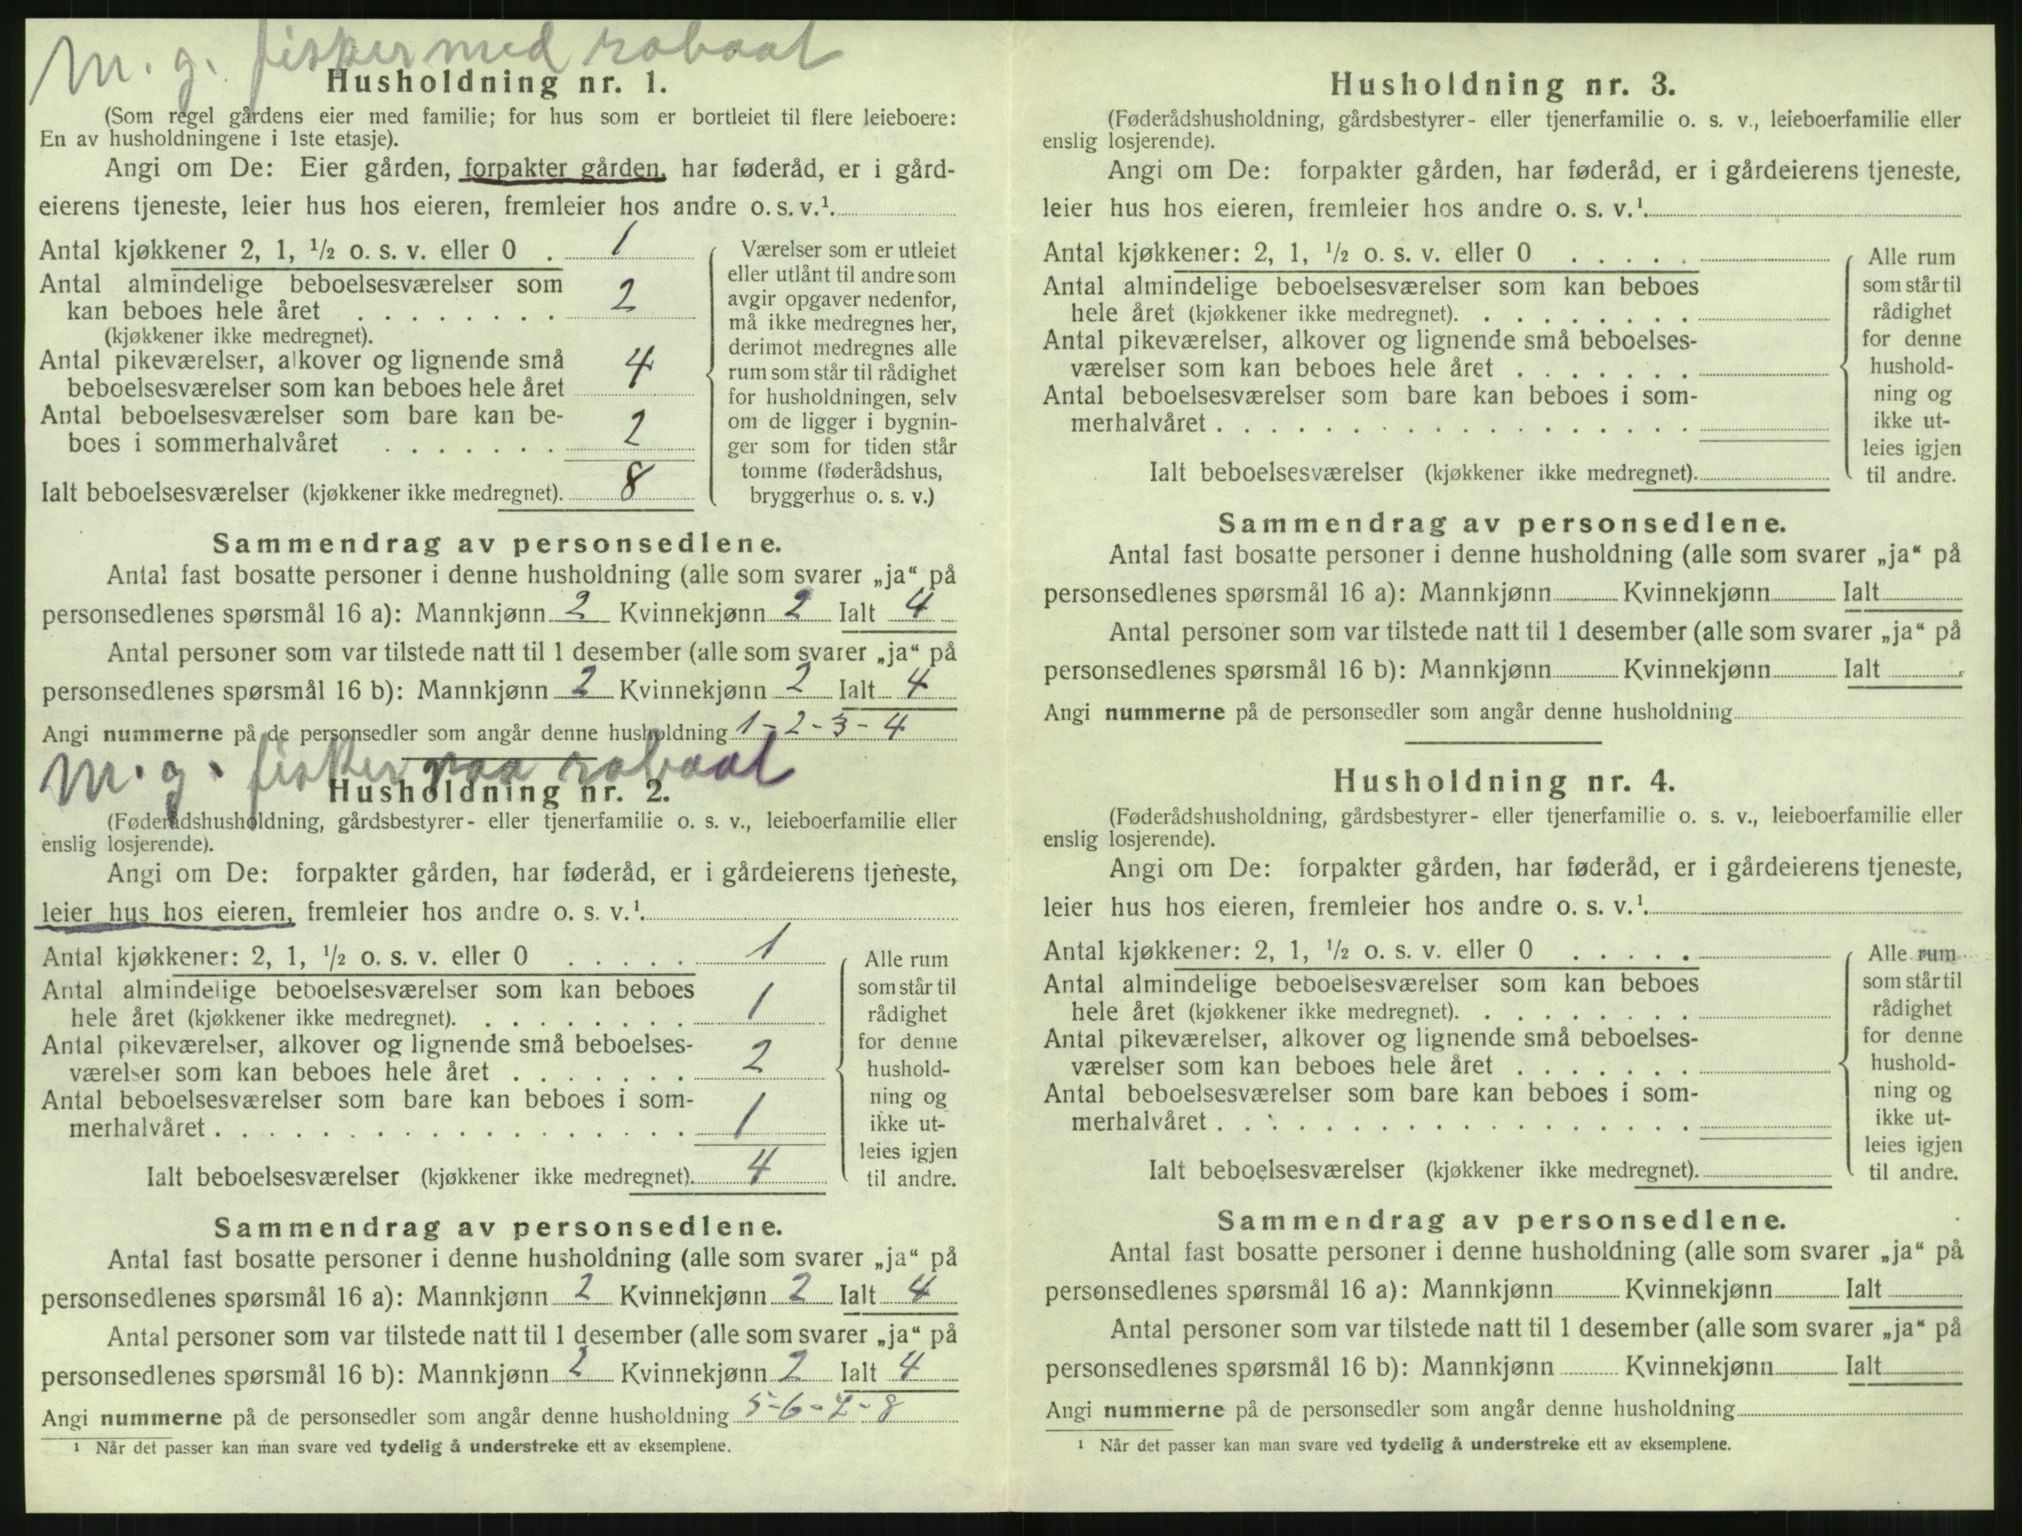 M. g. fisker med robaat
Husholdning nr. 1.
(Som regel gårdens eier med familie; for hus som er bortleiet til flere leieboere:
En av husholdningene i 1ste etasje).
Angi om De: Eier gården, forpakter gården, har føderåd, er i gård-
eierens tjeneste, leier hus hos eieren, fremleier hos andre o. s. v.¹.
Antal kjøkkener 2, 1, ½ o. s. v. eller 0 . 1
Antal almindelige beboelsesværelser som
kan beboes hele året . . . . . . . . 2
(kjøkkener ikke medregnet).
Antal pikeværelser, alkover og lignende små
beboelsesværelser som kan beboes hele året 4
Antal beboelsesværelser som bare kan be-
boes i sommerhalvåret . . . . . . . 2
Ialt beboelsesværelser (kjøkkener ikke medregnet). 8
Værelser som er utleiet
eller utlånt til andre som
avgir opgaver nedenfor,
må ikke medregnes her,
derimot medregnes alle
rum som står til rådighet
for husholdningen, selv
om de ligger i bygnin-
ger som for tiden står
tomme (føderådshus,
bryggerhus o. s. v.)
Sammendrag av personsedlene.
Antal fast bosatte personer i denne husholdning (alle som svarer „ja“ på
personsedlenes spørsmål 16 a): Mannkjønn 2 Kvinnekjønn 2 Ialt 4
Antal personer som var tilstede natt til 1 desember (alle som svarer „ja“ på
personsedlenes spørsmål 16 b): Mannkjønn 2 Kvinnekjønn 2 Ialt 4
Angi nummerne på de personsedler som angår denne husholdning 1-2-3-4
M. g. fisker paa robaat
Husholdning nr. 2.
(Føderådshusholdning, gårdsbestyrer- eller tjenerfamilie o. s. v., leieboerfamilie eller
enslig losjerende).
Angi om De: forpakter gården, har føderåd, er i gårdeierens tjeneste,
leier hus hos eieren, fremleier hos andre o. s. v.¹.
Antal kjøkkener: 2, 1, ½ o. s. v. eller 0 . . . . . 1
Antal almindelige beboelsesværelser som kan beboes
hele året (kjøkkener ikke medregnet). . . . . . . . . 1
Antal pikeværelser, alkover og lignende små beboelses-
værelser som kan beboes hele året . . . . . . . 2
Antal beboelsesværelser som bare kan beboes i som-
merhalvåret . . . . . . . . . . . . . . . . . . 1
Ialt beboelsesværelser (kjøkkener ikke medregnet). 4
Alle rum
som står til
rådighet
for denne
hushold-
ning og
ikke ut-
leies igjen
til andre.
Sammendrag av personsedlene.
Antal fast bosatte personer i denne husholdning (alle som svarer „ja“ på
personsedlenes spørsmål 16 a): Mannkjønn 2 Kvinnekjønn 2 Ialt 4
Antal personer som var tilstede natt til 1 desember (alle som svarer „ja“ på
personsedlenes spørsmål 16 b): Mannkjønn 2 Kvinnekjønn 2 Ialt 4
Angi nummerne på de personsedler som angår denne husholdning 5-6-7-8
¹ Når det passer kan man svare ved tydelig å understreke ett av eksemplene.
Husholdning nr. 3.
(Føderådshusholdning, gårdsbestyrer- eller tjenerfamilie o. s. v., leieboerfamilie eller
enslig losjerende).
Angi om De: forpakter gården, har føderåd, er i gårdeierens tjeneste,
leier hus hos eieren, fremleier hos andre o. s. v.¹.
Antal kjøkkener: 2, 1, ½ o. s. v. eller 0 . . . . .
Antal almindelige beboelsesværelser som kan beboes
hele året (kjøkkener ikke medregnet). . . . . . . . .
Antal pikeværelser, alkover og lignende små beboelses-
værelser som kan beboes hele året . . . . . . .
Antal beboelsesværelser som bare kan beboes i som-
merhalvåret . . . . . . . . . . . . . . . . . .
Ialt beboelsesværelser (kjøkkener ikke medregnet).
Alle rum
som står til
rådighet
for denne
hushold-
ning og
ikke ut-
leies igjen
til andre.
Sammendrag av personsedlene.
Antal fast bosatte personer i denne husholdning (alle som svarer „ja“ på
personsedlenes spørsmål 16 a): Mannkjønn Kvinnekjønn Ialt
Antal personer som var tilstede natt til 1 desember (alle som svarer „ja“ på
personsedlenes spørsmål 16 b): Mannkjønn Kvinnekjønn Ialt
Angi nummerne på de personsedler som angår denne husholdning
Husholdning nr. 4.
(Føderådshusholdning, gårdsbestyrer- eller tjenerfamilie o. s. v., leieboerfamilie eller
enslig losjerende).
Angi om De: forpakter gården, har føderåd, er i gårdeierens tjeneste,
leier hus hos eieren, fremleier hos andre o. s. v.¹.
Antal kjøkkener: 2, 1, ½ o. s. v. eller 0 . . . . .
Antal almindelige beboelsesværelser som kan beboes
hele året (kjøkkener ikke medregnet). . . . . . . . .
Antal pikeværelser, alkover og lignende små beboelses-
værelser som kan beboes hele året . . . . . . .
Antal beboelsesværelser som bare kan beboes i som-
merhalvåret . . . . . . . . . . . . . . . . . .
Ialt beboelsesværelser (kjøkkener ikke medregnet).
Alle rum
som står til
rådighet
for denne
hushold-
ning og
ikke ut-
leies igjen
til andre.
Sammendrag av personsedlene.
Antal fast bosatte personer i denne husholdning (alle som svarer „ja“ på
personsedlenes spørsmål 16 a): Mannkjønn Kvinnekjønn Ialt
Antal personer som var tilstede natt til 1 desember (alle som svarer „ja“ på
personsedlenes spørsmål 16 b): Mannkjønn Kvinnekjønn Ialt
Angi nummerne på de personsedler som angår denne husholdning
¹ Når det passer kan man svare ved tydelig å understreke ett av eksemplene.